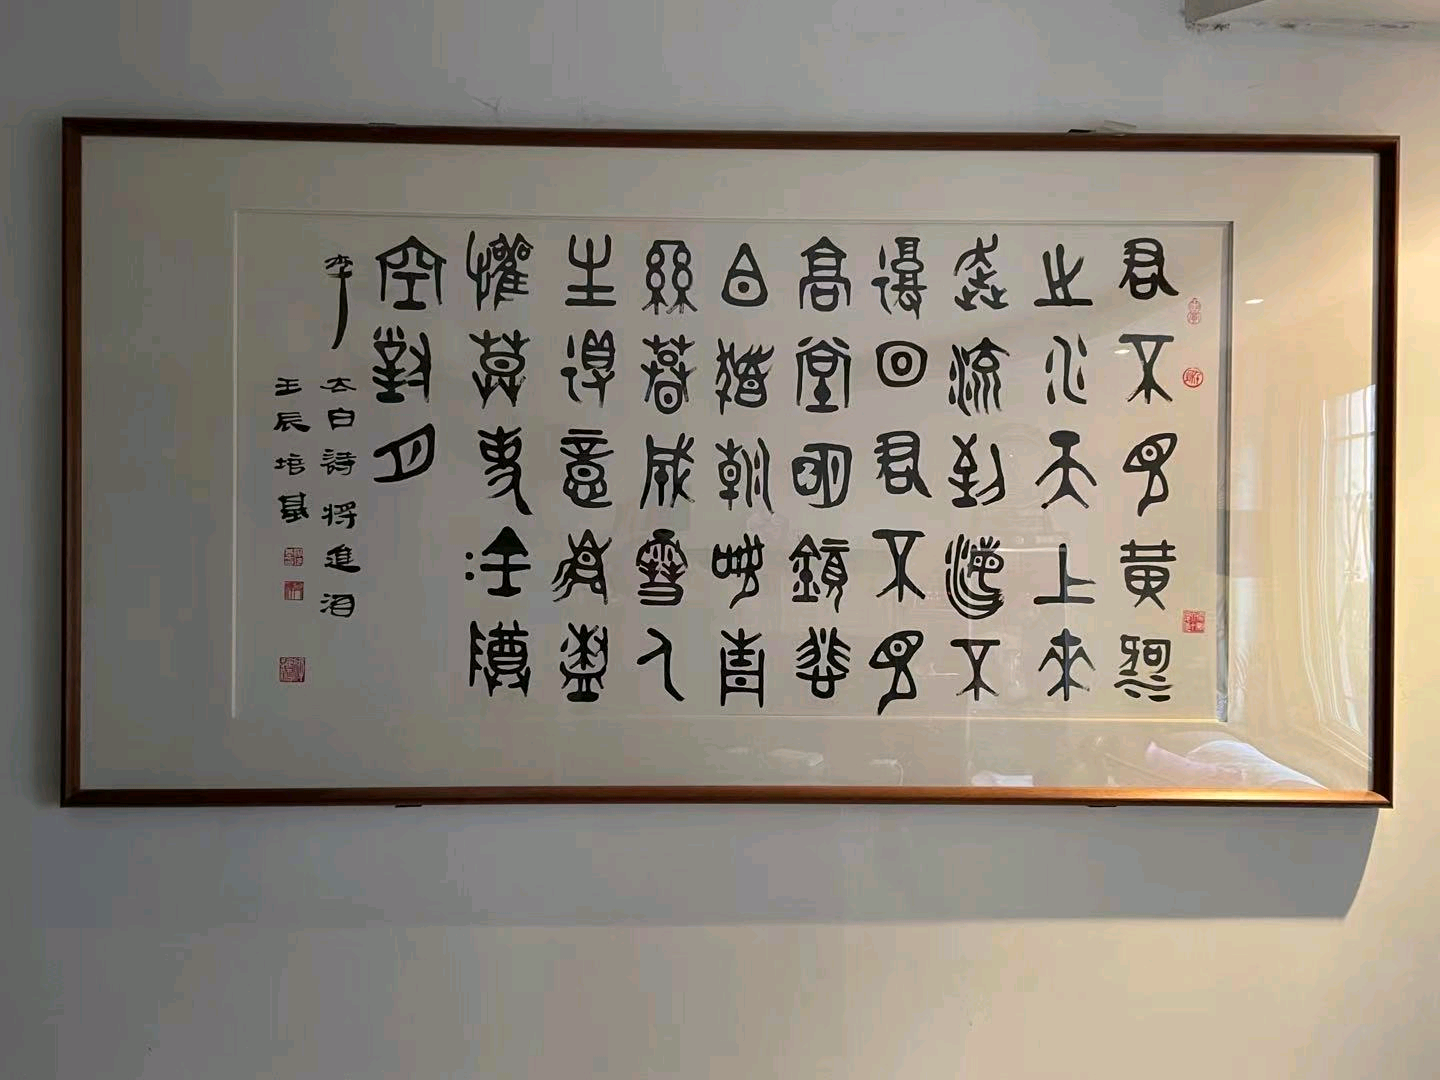 君不見黃河
之水天上來
奔流到海不
復回君不見
高堂明鏡悲
白髮朝如青
絲暮成雪人
生得意須盡
歡莫使金樽
空對月
李太白詩將進酒
壬辰培基